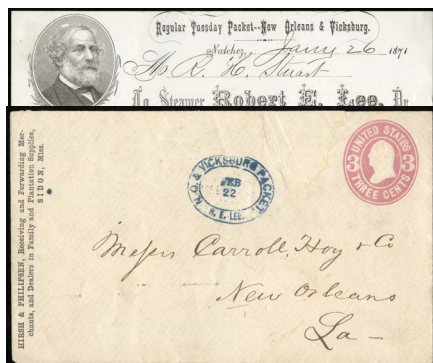 Regular Tuesday Packet--New Orleans & Vicksburg.
Natchez, Jany 26 1871
R. H. Stuart
To Steamer Robert E. Lee, Dr
HIRSH & PHILIPSEN, Receiving and Forwarding Mer-
chants, and Dealers in Family and Plantation Supplies,
SIDON, Miss.
N.O. & VICKSBURG PACKET
FEB
22
R. E. LEE.
UNITED STATES
3 3
THREE CENTS
Messrs Carroll, Hoy & Co
New Orleans
La -